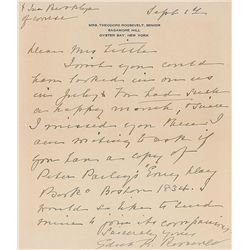 Sept 1st
of course
MRS. THEODORE ROOSEVELT, SENIOR
SAGAMORE HILL
OYSTER BAY, NEW YORK
Dear Mrs Little
I wish you could
have looked in on us
in July & Tom had such
a happy month, & since
I missed you there I
am writing to ask if
you have a copy of
Peter Parley's Every Day
Book Boston 1834. I
would so like to send
mine to join its companions
Sincerely yours
Edith K. Roosevelt